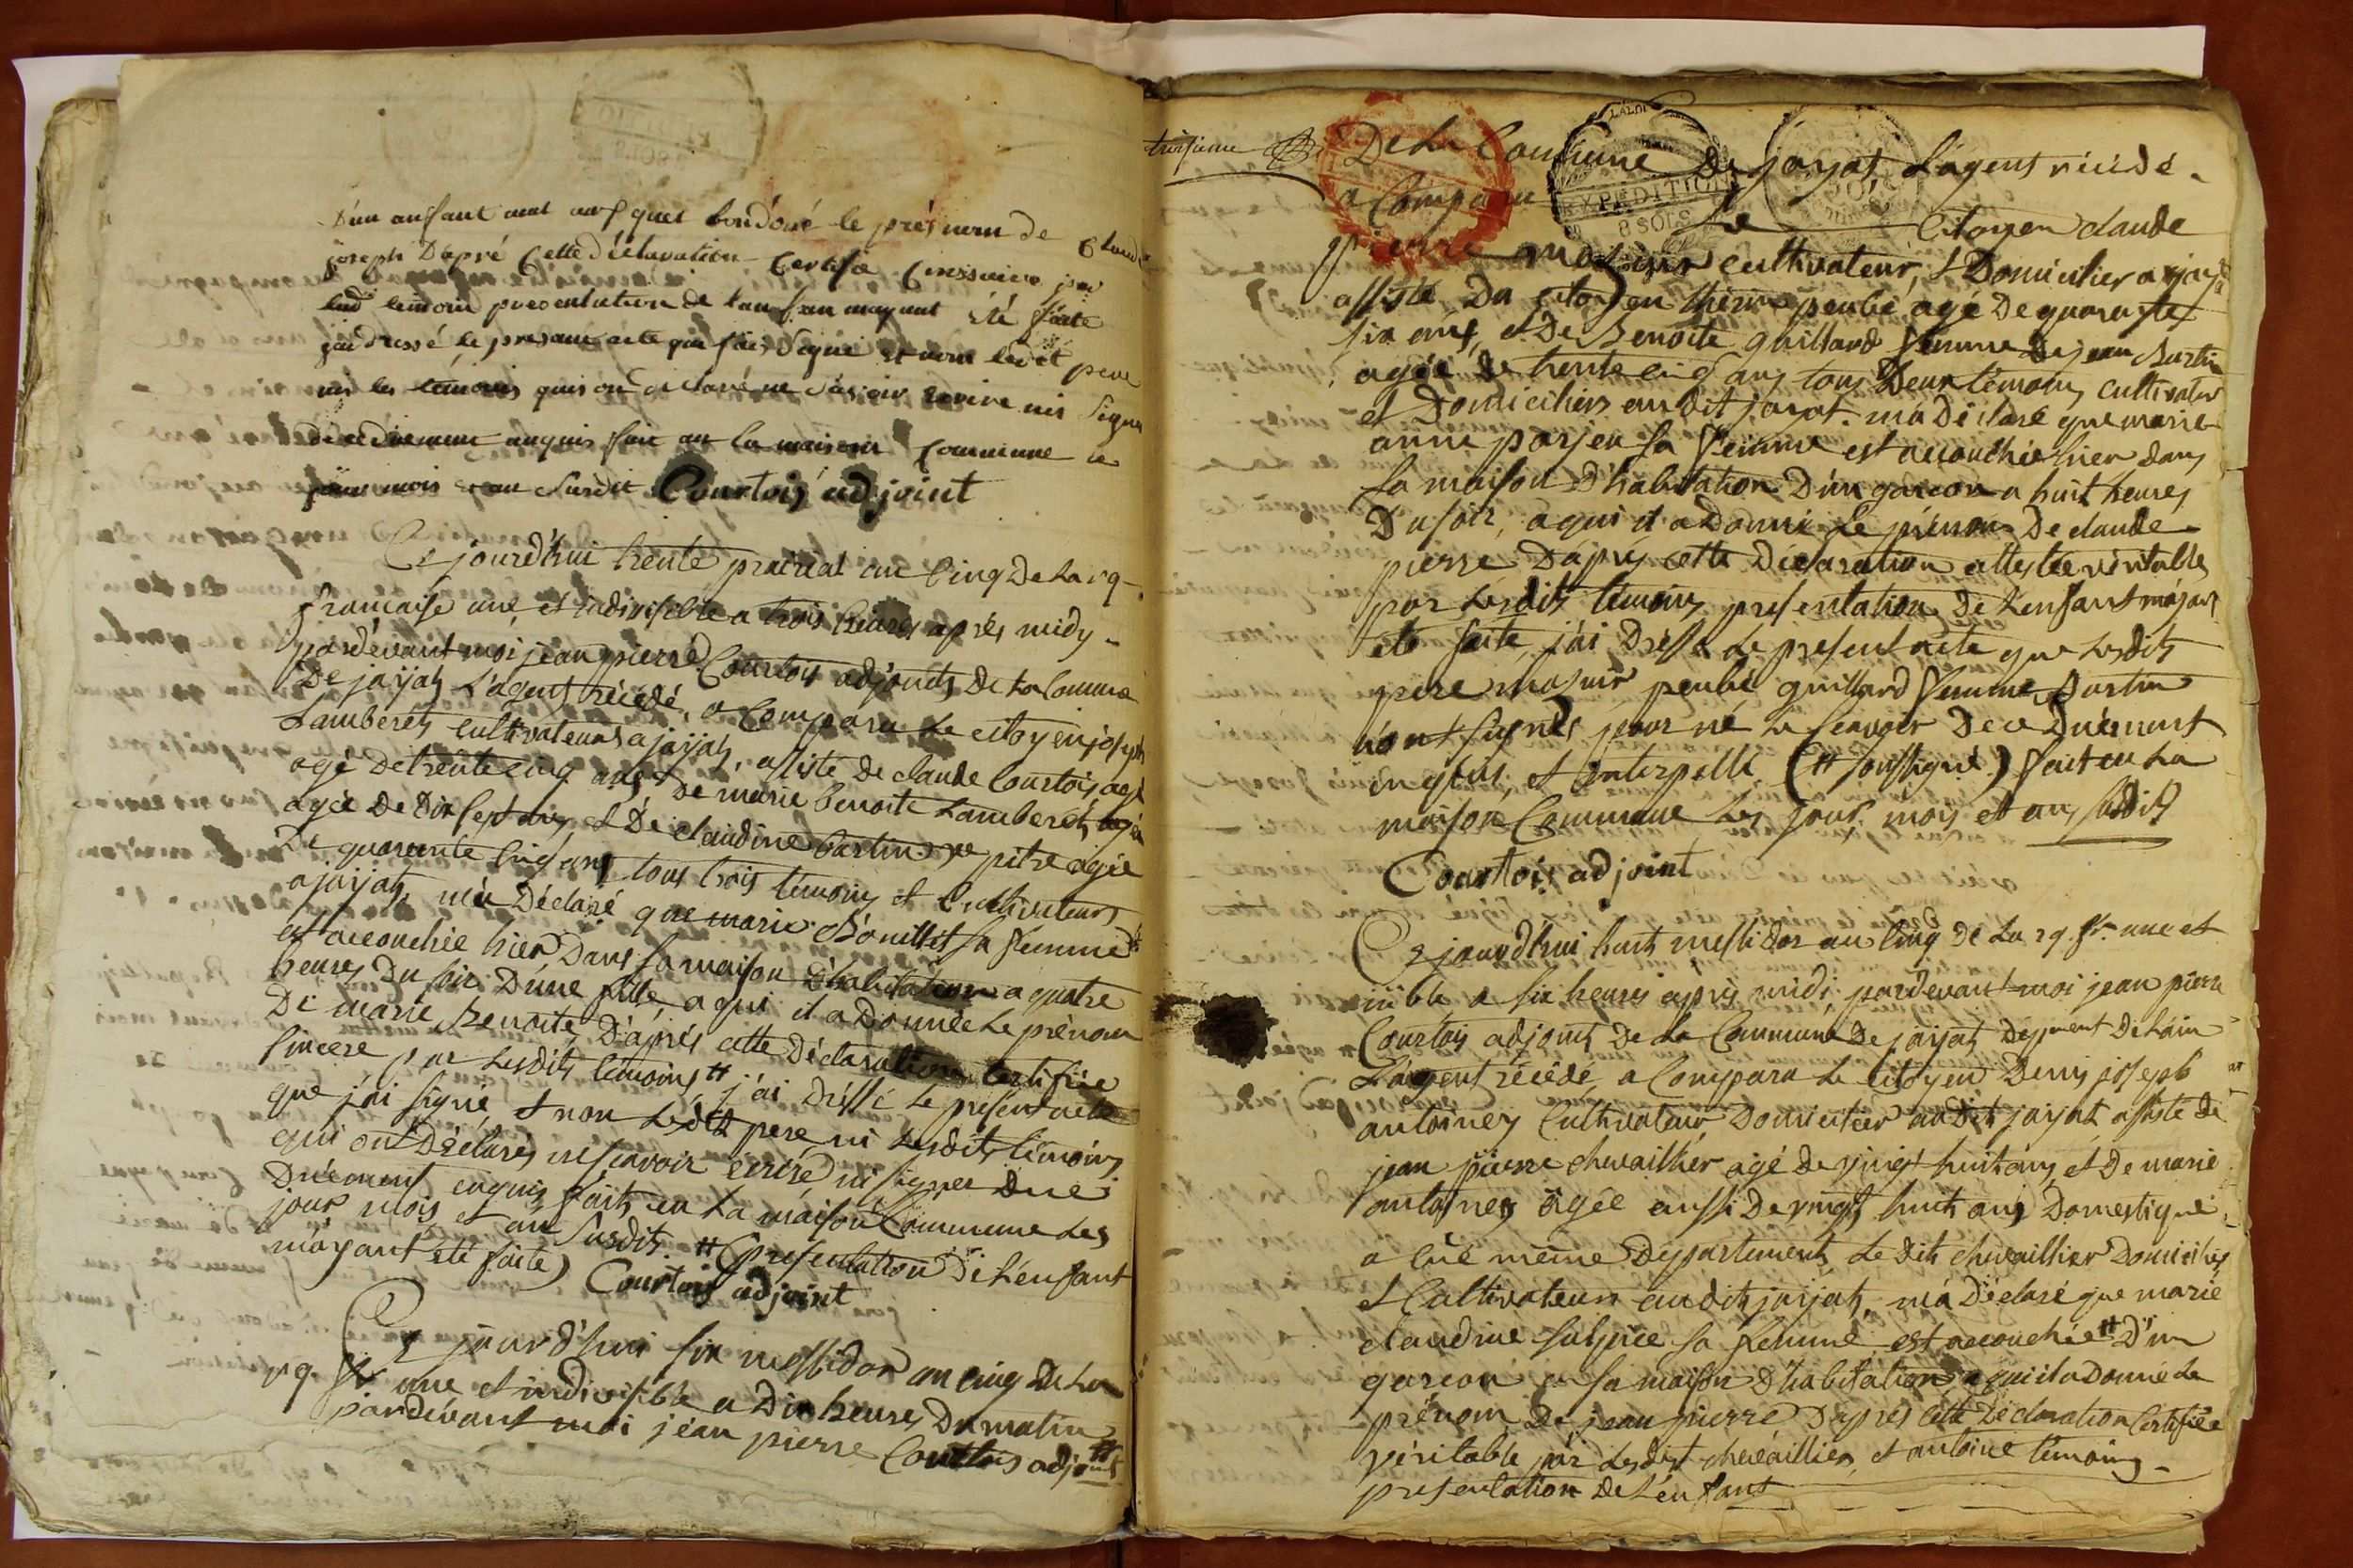 D'un anfant mal au quel bon donné le présnom de Claude
joseph D'apré Cette déclaration Certifié Cinssaire par
lesd temoin presentation de l'anfan mayant été faite
jai dressé le presant acte que jai Signé et non ledit pere
nis les témoins quis on déclaré ne sçavoir ecrire nis Signer
de ce duement anquis fait an la maison Commune ce
jour mois et an Susdit Courtois adjoint
Ce jourd'hui trente prairial an Cinq De La rq
francaise une et indivisible a trois heures aprés midy
pardevant moi jean pierre Courtois adjoint De La Commune
De jayat, L'agent récédé, a Comparu Le citoyen joseph
Lamberet cultivateur a jayat, assisté De claude Courtois agé
agé De trente cinq ans De marie benoite Lamberet agée
agée De Dix sept ans, et De claudine bastin pitre agée
De quarante Cinq ans tous trois témoins et Cultivateurs
a jayat, m'a Déclaré que marie Bouillet sa femme
est accouchée hier Dans sa maison D'habitation a quatre
heures Du soir D'une fille, a qui il a Donnée Le prénom
De marie Benoite, D'aprés cette Déclaration Certifiée
sincere par Lesdits témoins # j'ai Dressé Le présent acte
que j'ai signé, et non Ledit pere ni Lesdits témoins
qui ont Déclarés ne scavoir écrire ni signer De ce
Duement enquis fait en La maison Commune Les
jour mois et an Susdits. # (presentation De L'enfant
m'ayant été faite) Courtois adjoint
Ce jourd'hui six messidor an cinq De La
rq fr une et indivisible a Dix heures Du matin
pardevant moi jean pierre Courtois adjoint
troisieme
De La Commune De jayat, L'agent récédé
a Comparu Le Citoyen claude
pierre cultivateur, et Domicilier a jayat
assisté Du citoyen peubé, agé De quarante
six ans, et De Benoite guillard femme De jean Bastin
agée De trente cinq ans tous Deux témoins, cultivateur
et Domiciliers audit jayat. m'a Déclaré que marie
anne parjeu sa femme est accouchée hier Dans
sa maison D'habitation D'un garcon a huit heures
Du soir, a qui il a Donné Le prénom De claude
pierre D'aprés cette Déclaration attestée véritable
par Lesdits témoins, presentation De L'enfant m'ayant
été faite, j'ai Dressé Le present acte que Lesdits
pere peubé guillard femme Bastin
n'ont signés pour né Le scavoir De ce Duément
enquis, et interpellé (# soussigné) fait en La
maison Commune Les jour, mois et an susdit
Courtois adjoint
Ce jourd'hui huit messidor an Cinq De La rq. fr. une et
iible a six heures aprés midi, pardevant moi jean pierre
Courtois adjoint De La Commune De jayat Depment De Lain
L'agent récédé, a Comparu Le Citoyen Denis joseph
antoinez Cultivateur Domicilier audit jayat assisté De
jean pierre chevaillier agé De vingt huit ans, et De marie
antoinez agée aussi De vingt huit ans Domestique
a même Département, Le Dit chevaillier Domicilier
et Cultivateur audit jayat, m'a Déclaré que marie
claudine sulpice sa femme est accouchée # D'un
garcon en sa maison D'habitation a qui il a Donné Le
prénom De jean pierre D'aprés cette Déclaration Certifiée
véritable par Lesdit chevaillier, et antoine témoins
presentation De L'enfant